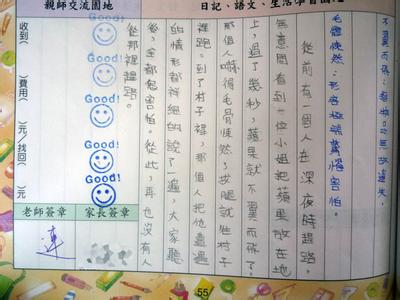 親師交流園地
日記、語文、生活學習園地
不翼而飛：無故遺失。
毛骨悚然：形容極端驚惶害怕。
從前有一個人在深夜時趕路。
無意間看到一位小姐把蘋果放在地
上，過了幾秒，蘋果就不翼而飛了。
那個人嚇得毛骨悚然，拔腿就往村子
裡跑。到了村子裡，那個人把他遇過
的情形都詳細的說了一遍，大家聽
後，全都很害怕。從此，再也沒有人
從那裡趕路。
Good!
Good!
Good!
Good!
Good!
收到（ ）費用（ ）元/找回（ ）元
老師簽章
家長簽章
連
55